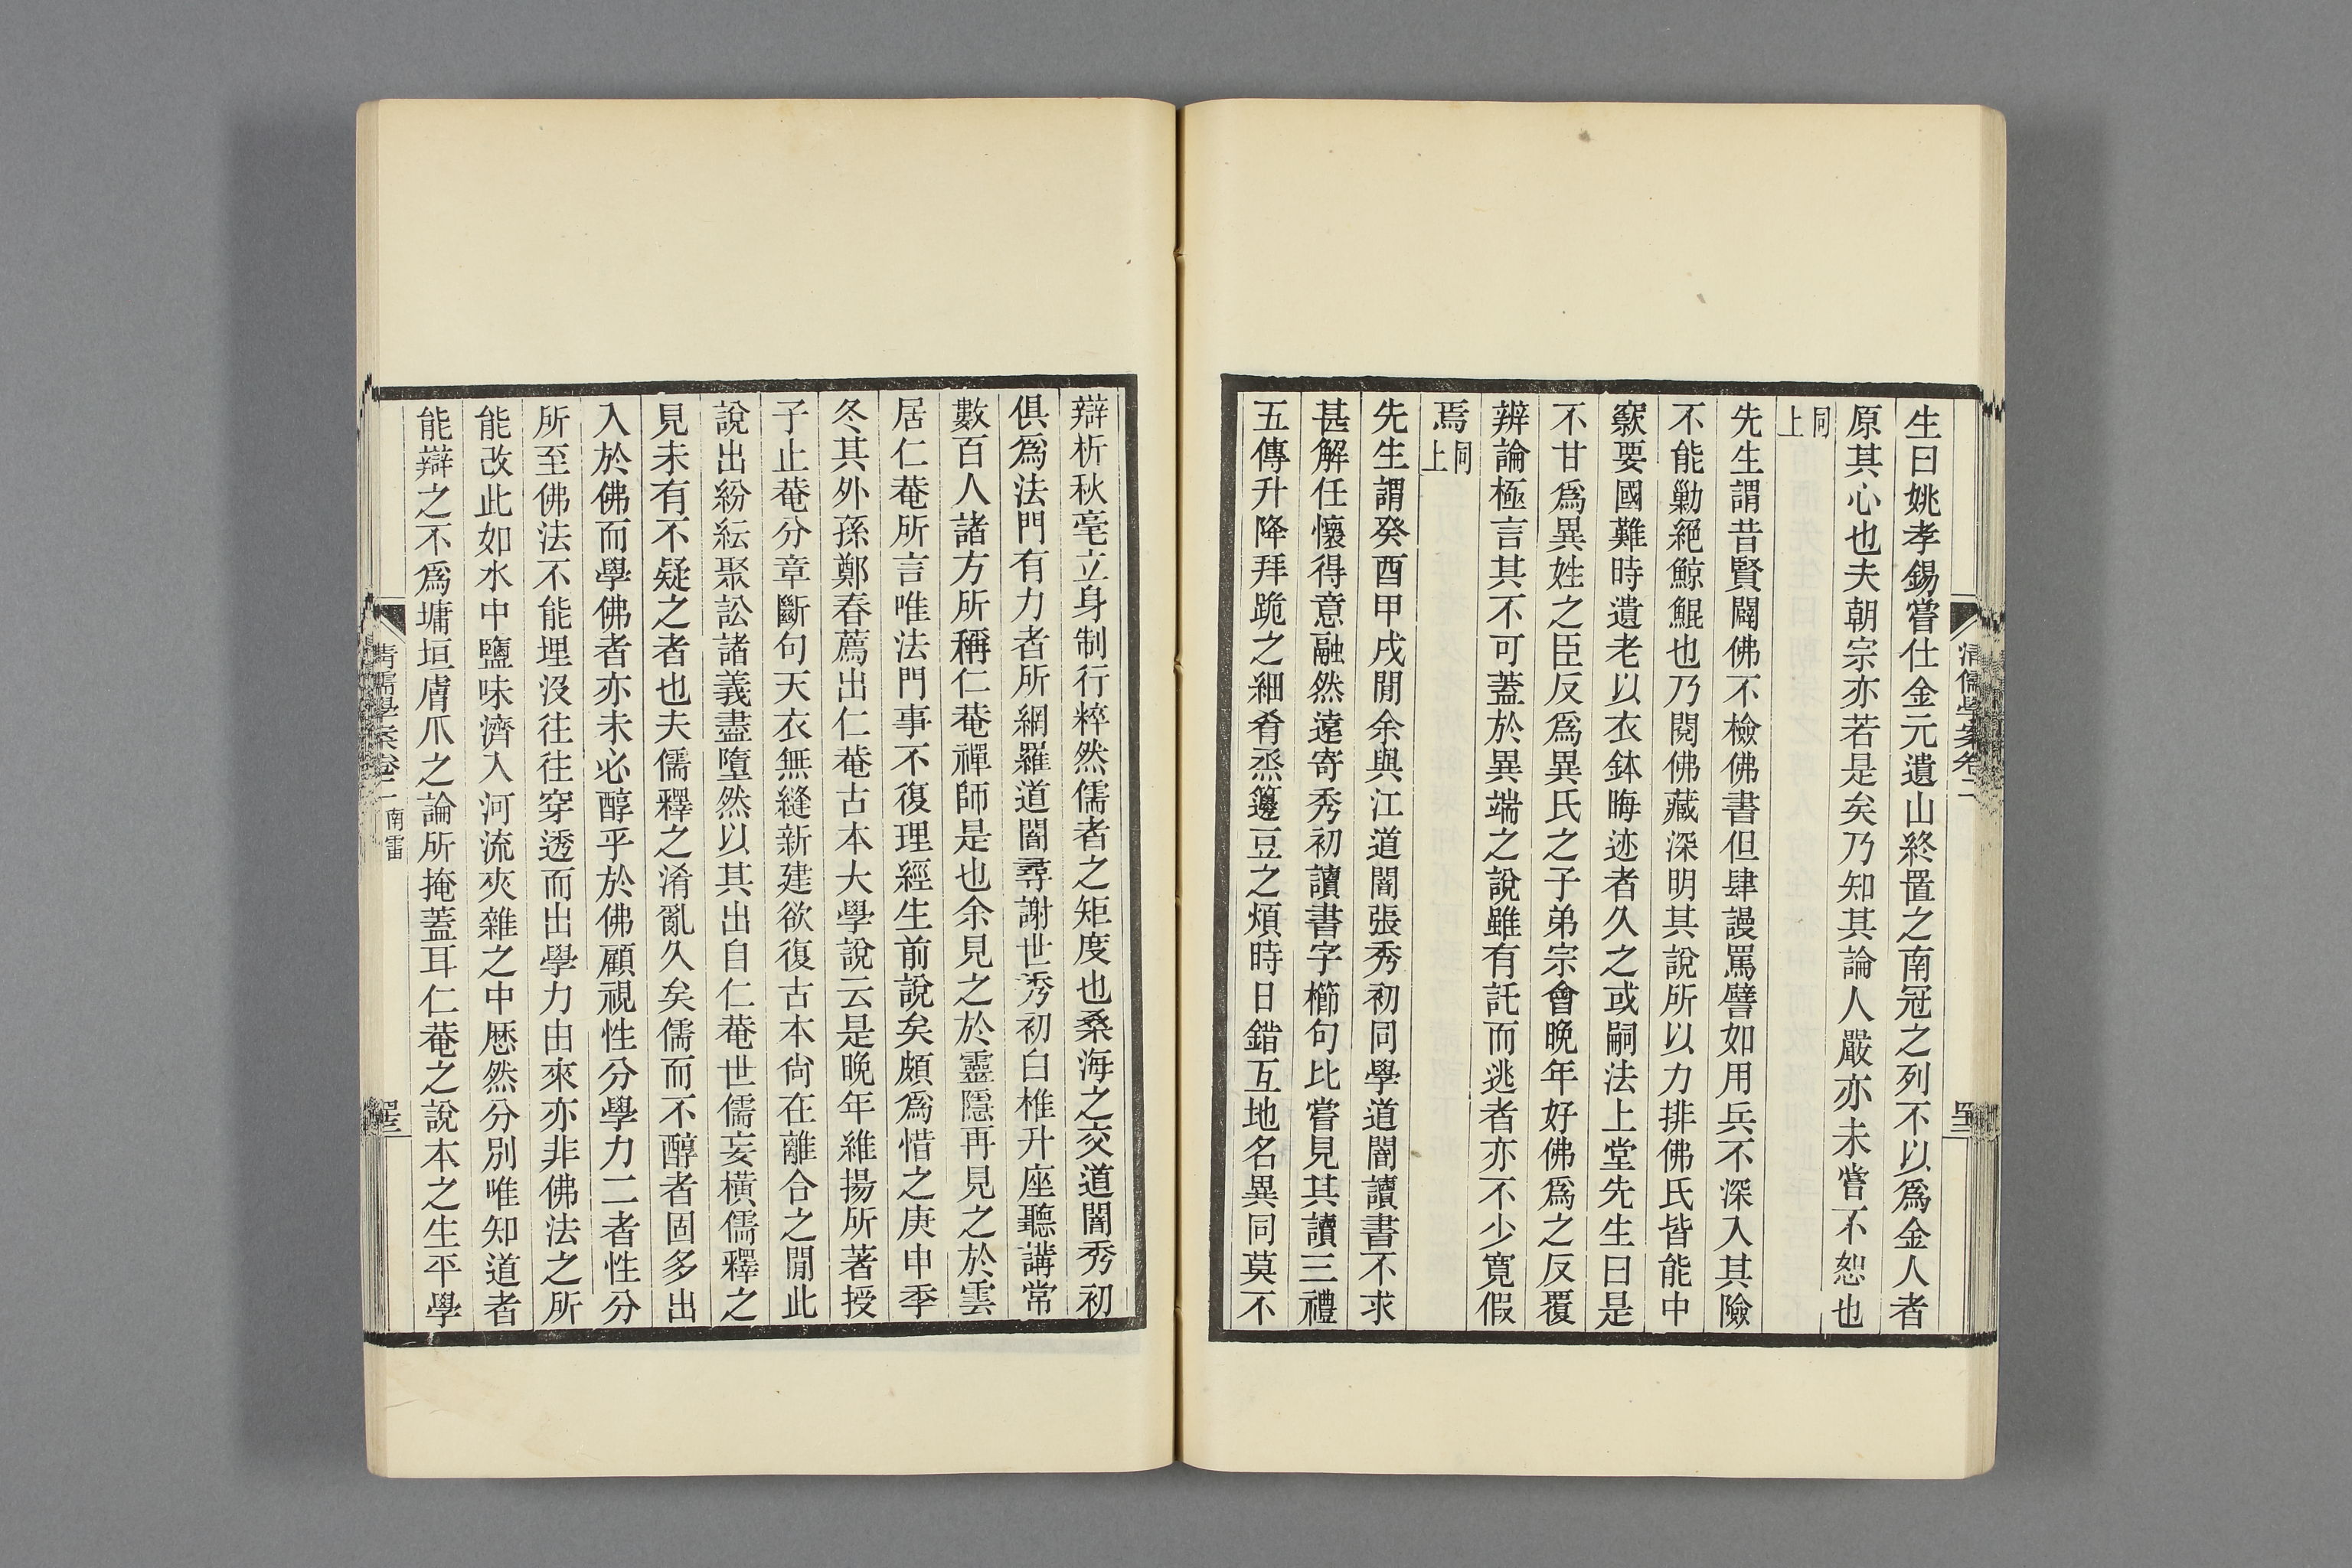 生曰姚孝錫嘗仕金元遺山終置之南冠之列不以爲金人者
原其心也夫朝宗亦若是矣乃知其論人嚴亦未嘗不恕也
同上
先生謂昔賢闢佛不檢佛書但肆謾罵譬如用兵不深入其險
不能勦絕鯨鯤也乃閱佛藏深明其說所以力排佛氏皆能中
窾要國難時遺老以衣鉢晦迹者久之或嗣法上堂先生曰是
不甘爲異姓之臣反爲異氏之子弟宗會晚年好佛爲之反覆
辨論極言其不可蓋於異端之說雖有託而逃者亦不少寬假
焉同上
先生謂癸酉甲戌閒余與江道闇張秀初同學道闇讀書不求
甚解任懷得意融然遠寄秀初讀書字櫛句比嘗見其讀三禮
五傳升降拜跪之細肴烝籩豆之煩時日錯互地名異同莫不
清儒學案卷二
辯析秋毫立身制行粹然儒者之矩度也桑海之交道闇秀初
俱爲法門有力者所網羅道闇尋謝世秀初白椎升座聽講常
數百人諸方所稱仁菴禪師是也余見之於靈隱再見之於雲
居仁菴所言唯法門事不復理經生前說矣頗爲惜之庚申季
冬其外孫鄭春薦出仁菴古本大學說云是晚年維揚所著授
子止菴分章斷句天衣無縫新建欲復古本尙在離合之閒此
說出紛紜聚訟諸義盡墮然以其出自仁菴世儒妄橫儒釋之
見未有不疑之者也夫儒釋之淆亂久矣儒而不醇者固多出
入於佛而學佛者亦未必醇乎於佛顧視性分學力二者性分
所至佛法不能埋沒往往穿透而出學力由來亦非佛法之所
能改此如水中鹽味濟入河流夾雜之中厯然分別唯知道者
能辯之不爲墉垣膚爪之論所掩蓋耳仁菴之說本之生平學
清儒學案卷二 南雷